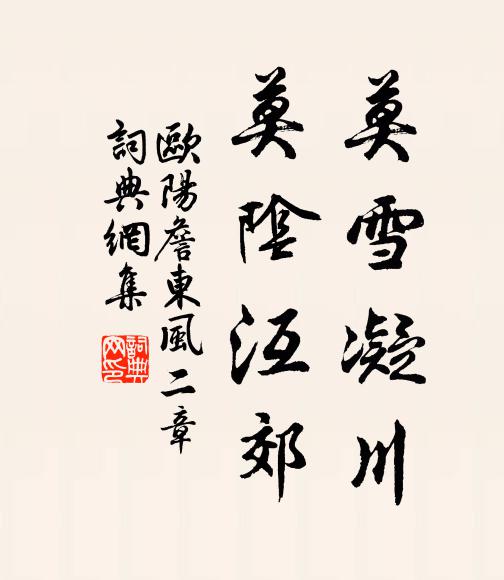 莫雪凝川
莫陰沍郊
歐陽詹東風二章
詞典網集
詞典
网印